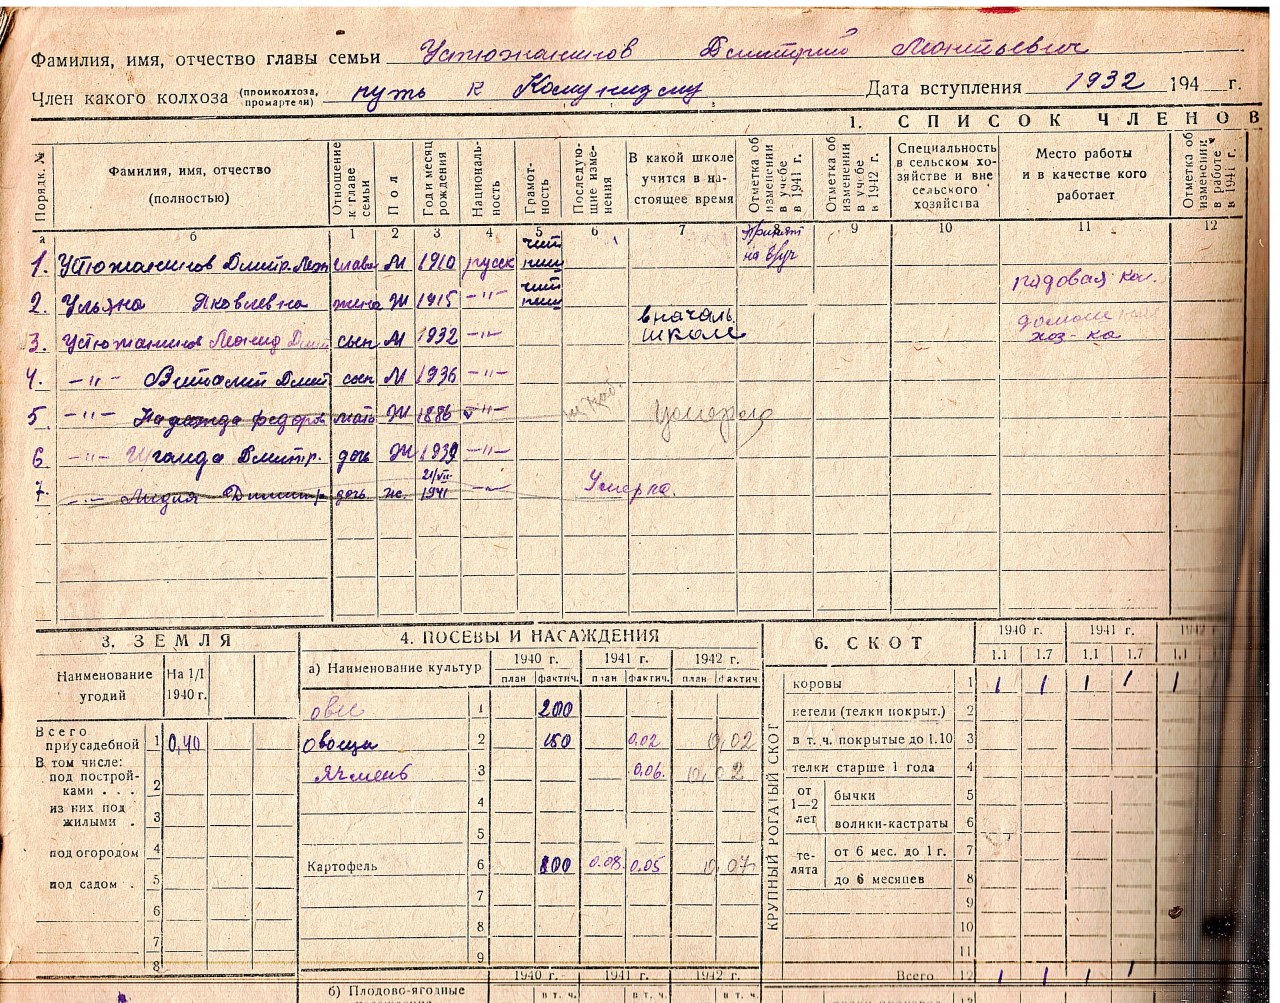 Фамилия, имя, отчество главы семьи Устюжанинов Дмитрий Леонтьевич
Член какого колхоза (промколхоза, промартели) путь к Комунизму Дата вступления 1932 194 г.
1. СПИСОК ЧЛЕНОВ
Порядк. № Фамилия, имя, отчество (полностью) Отношение к главе семьи Пол Год и месяц рождения Националь-ность Грамот-ность Последую-щие изме-нения В какой школе учится в на-стоящее время Отметка об изменении в учебе в 1941 г. Отметка об изменении в учебе в 1942 г. Специальность в сельском хо-зяйстве и вне сельского хозяйства Место работы и в качестве кого работает Отметка об изменении в работе в 1941 г.
а б 1 2 3 4 5 6 7 8 9 10 11 12
1. Устюжанинов Дмитр. Леон глава М 1910 русск чит пиш Принят на
2. Ульяна Яковлевна жена Ж 1915 -"- чит пиш рядовая кол.
3. Устюжанинов Леонид Дмит сын М 1932 -"- в началь школе домаш хоз-ка
4. -"- Виталий Дмит сын М 1936 -"-
5 -"- Надежда федоров мать Ж 1886 -"-
6 -"- Дмитр. дочь Ж 1939 -"-
7. -"- Лидия Дмитр дочь ж. 21/VII 1941 -"- Умерла.
3. ЗЕМЛЯ
Наименование угодий На 1/I 1940 г.
Всего приусадебной 1 0,40
В том числе:
под построй-ками . . . 2
из них под жилыми . 3
под огородом 4
под садом . 5
6
7
8
4. ПОСЕВЫ И НАСАЖДЕНИЯ
а) Наименование культур 1940 г. 1941 г. 1942 г.
план фактич. план фактич. план фактич.
овес 1 200
овощи 2 150 0.02 0,02
ячмень 3 0.06. 0,02
4
5
Картофель 6 800 0.08 0.05 0,07
7
8
9
1940 г. 1941 г. 1942 г.
б) Плодово-ягодные
в т. ч. в т. ч. в т. ч.
6. СКОТ 1940 г. 1941 г. 1942
1.1 1.7 1.1 1.7 1.1
КРУПНЫЙ РОГАТЫЙ СКОТ
коровы 1 1 1 1 1 1
нетели (телки покрыт.) 2
в т. ч. покрытые до 1.10 3
телки старше 1 года 4
от 1—2 лет бычки 5
волики-кастраты 6
те-лята от 6 мес. до 1 г. 7
до 6 месяцев 8
9
10
11
Всего 12 1 1 1 1